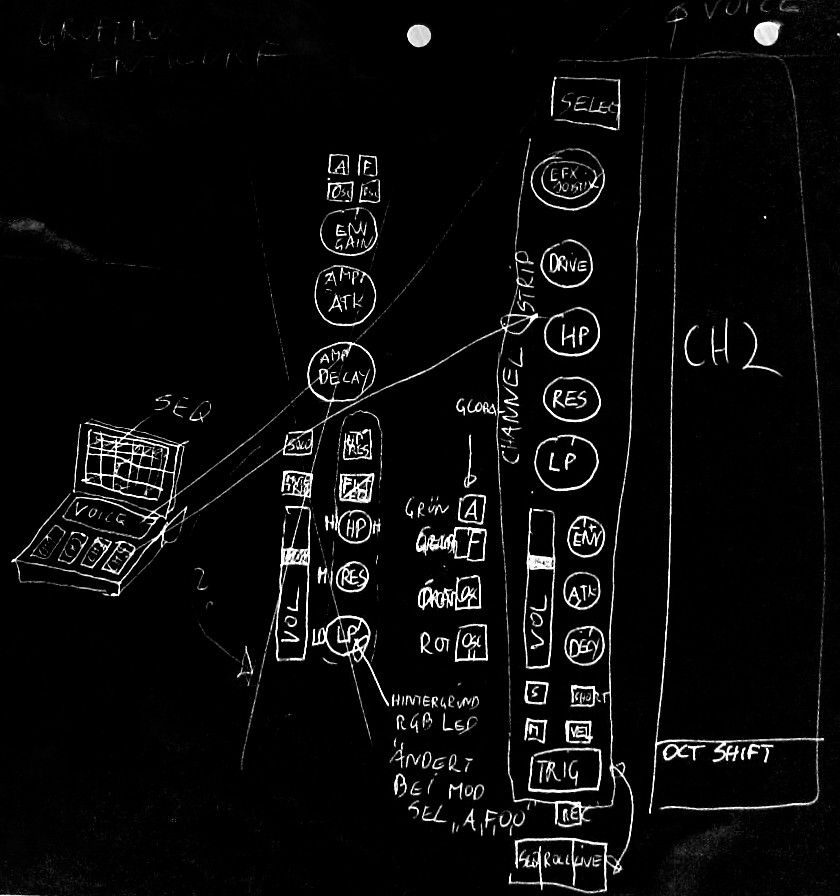 VOICE
SELEC
EFX
DRIVE
HP
RES
LP
CHANNEL STRIP
CH2
A
F
OSC
ENV
GAIN
AMP
ATK
AMP
DECAY
SEQ
VOICE
SOLO
RES
HP
H
M
RES
LO
LP
VOL
2
GLOBAL
GRÜN
A
F
ROT
OSC
VOL
ENV
ATK
DECY
S
SHORT
M
VEL
TRIG
REC
SEQ
ROLL
LIVE
OCT SHIFT
HINTERGRUND
RGB LED
ÄNDERT
BEI MOD
SEL „A,F,O,O"